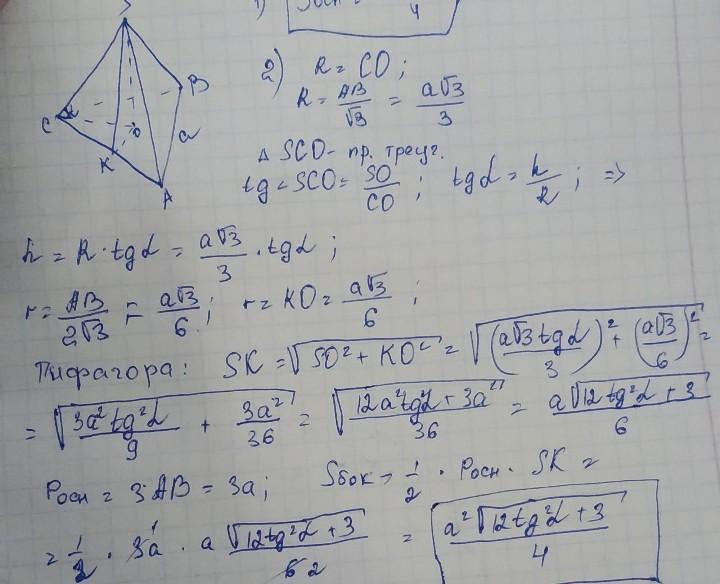 1) Sосн = 4
2) R = CO ;
R = AB/√3 = a√3/3
△ SCO - пр. треуг.
tg∠SCO = SO/CO ; tgα = h/R ; =>
h = R · tgα = a√3/3 · tgα ;
r = AB/2√3 = a√3/6 ; r = KO = a√3/6 ;
Пифагора: SK = √(SO² + KO²) = √((a√3 tgα/3)² + (a√3/6)²) =
= √(3a² tg²α/9 + 3a²/36) = √((12a² tg²α + 3a²)/36) = a√(12tg²α + 3)/6
Pосн = 3·AB = 3a ; Sбок = 1/2 · Pосн · SK =
= 1/2 · 3a · a√(12tg²α + 3)/6 2 = a²√(12tg²α + 3)/4
S
B
C
α
O
a
K
A